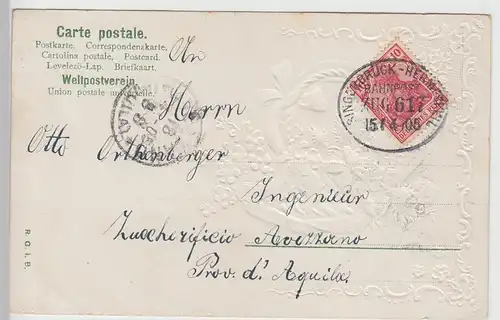 Carte postale.
Postkarte. Correspondenzkarte.
Cartolina postale, Postcard.
Levelező-Lap. Briefkaart.
Weltpostverein.
Union postale universelle.
An
Herrn
Otto Orthenberger
Ingenieur
Zuccherificio Avezzano
Prov. d'Aquila
BAHNPOST
ZUG 617
15.4.06
10
R. G. i. B.